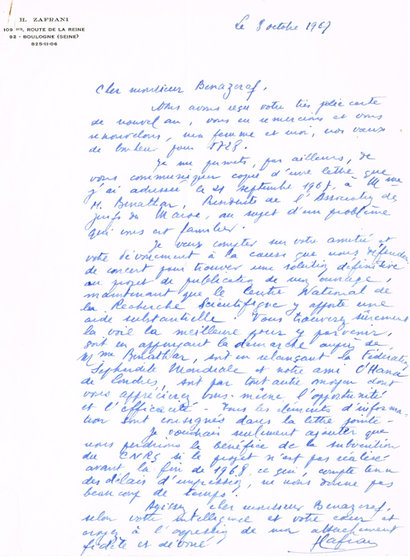 H. ZAFRANI
109 bis, ROUTE DE LA REINE
92 - BOULOGNE (SEINE)
825-11-06
Le 8 octobre 1967
Cher monsieur Benazeraf,
Nous avons reçu votre très jolie carte
de nouvel an, vous en remercions et vous
renouvelons, ma femme et moi, nos vœux
de bonheur pour 5728.
Je me permets, par ailleurs, de
vous communiquer copie d'une lettre que
j'ai adressée le 21 septembre 1967 à Mme
H. Benathar, Présidente de l'Association des
juifs du Maroc, au sujet d'un problème
qui vous est familier.
Je veux compter sur votre amitié et
votre dévouement à la cause que nous défendons
de concert pour trouver une solution définitive
au projet de publication de mon ouvrage
maintenant que le Centre National de
la Recherche Scientifique y apporte une
aide substantielle. Vous trouverez sûrement
la voie la meilleure pour y parvenir,
soit en appuyant la démarche auprès de
Mme Benathar, soit en relançant la Fédération
Séphardite Mondiale et notre ami
de Londres, soit par tout autre moyen dont
vous apprécierez vous-même l'opportunité
et l'efficacité - Tous les éléments d'informa-
tion sont consignés dans la lettre jointe -
Je voudrais seulement ajouter que
nous perdrions le bénéfice de la subvention
du CNRS si le projet n'est pas réalisé
avant la fin de 1968, ce qui, compte tenu
des délais d'impression, ne nous donne pas
beaucoup de temps.
cher monsieur Benazeraf,
selon votre intelligence et votre cœur et
croyez à l'expression de mon attachement
fidèle et dévoué
Zafrani